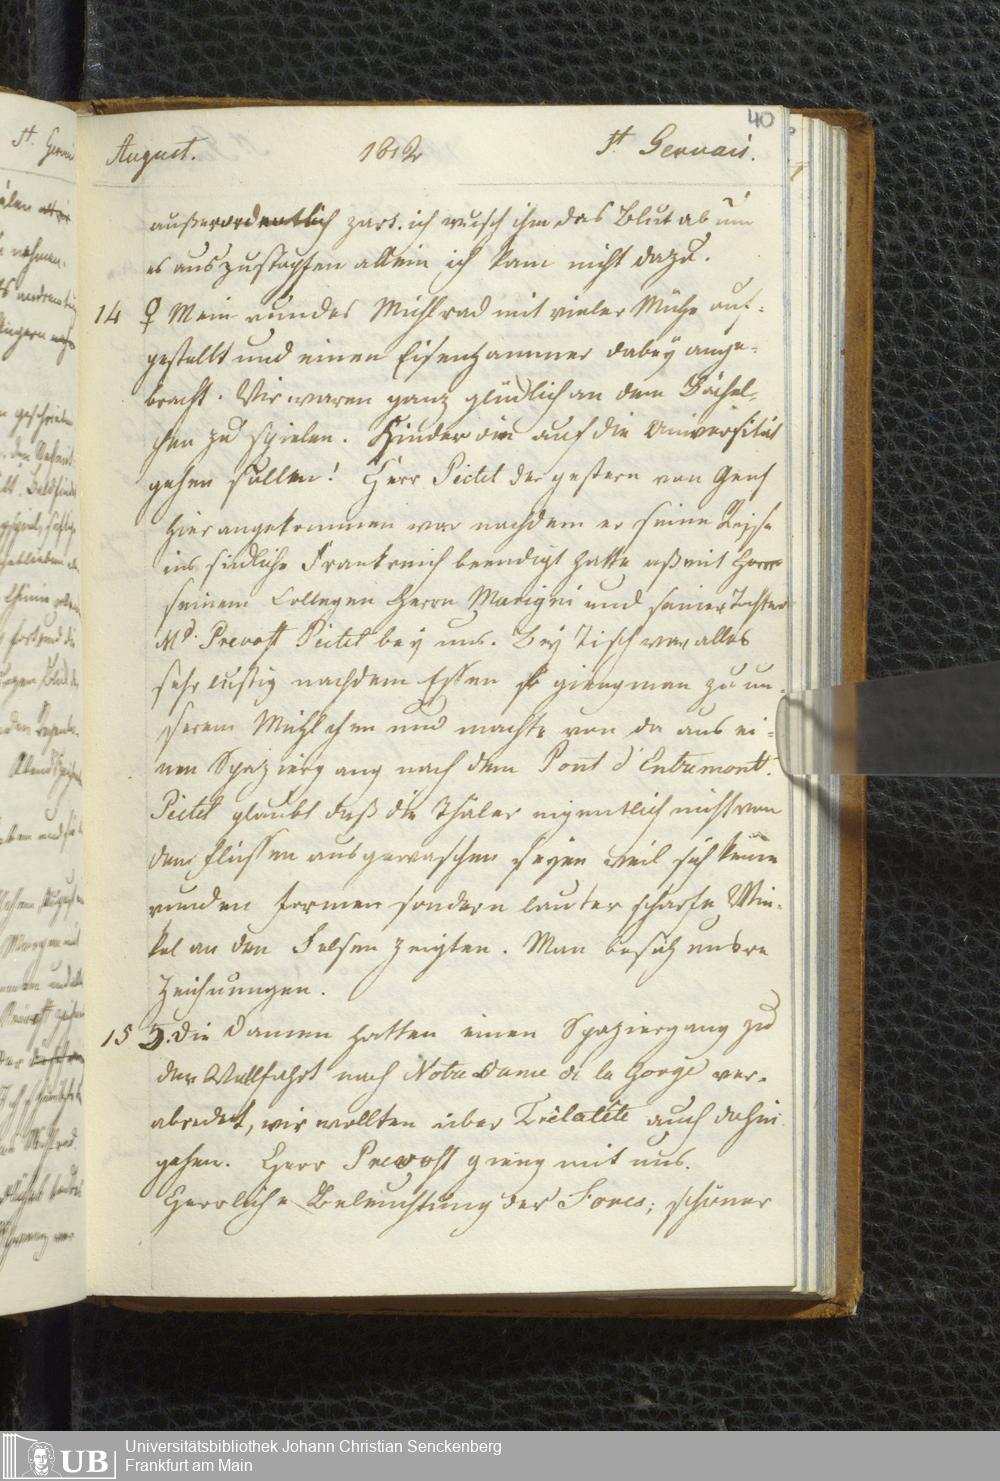 40
August. 1812 St. Gervais.
außerordentlich zart. ich wusch ihm das Blut ab um
es auszustopfen allein ich kam nicht dazu.
14 ♀ Mein rundes Muhlrad mit vieler Mühe auf-
gestellt und einen Eisenhammer dabey ange-
bracht. Wir waren ganz glücklich an dem Bächel-
chen zu spielen. Kinder die auf die Universität
gehen sollen! Herr Pictet der gestern von Genf
hier angekommen war nachdem er seine Reise
ins südliche Frankreich beendigt hatte aß mit
seinem Collegen Herrn Marigni und seiner Tochter
Md. Prevost Pictet bey uns. Bey Tisch war alles
sehr lustig nachdem Essen gieng man zu un-
serem Mühlchen und machte von da aus ei-
nen Spaziergang nach dem Pont d'Entremont.
Pictet glaubt daß die Thäler eigentlich nicht von
den Flüssen ausgewaschen seyen weil sich keine
runden Formen sondern lauter scharfe Win-
kel an den Felsen zeigten. Man besah unsre
Zeichnungen.
15 ♄. Die Damen hatten einen Spaziergang zu
der Wallfahrt nach Notre Dame de la Gorge ver-
abredet, wir wollten über Trélatéte auch dahin
gehen. Herr Prevost gieng mit uns.
Herrliche Beleuchtung der Fores; schöner
St. Gervai
nehmen.
geschrieben
Universitätsbibliothek Johann Christian Senckenberg
Frankfurt am Main
UB